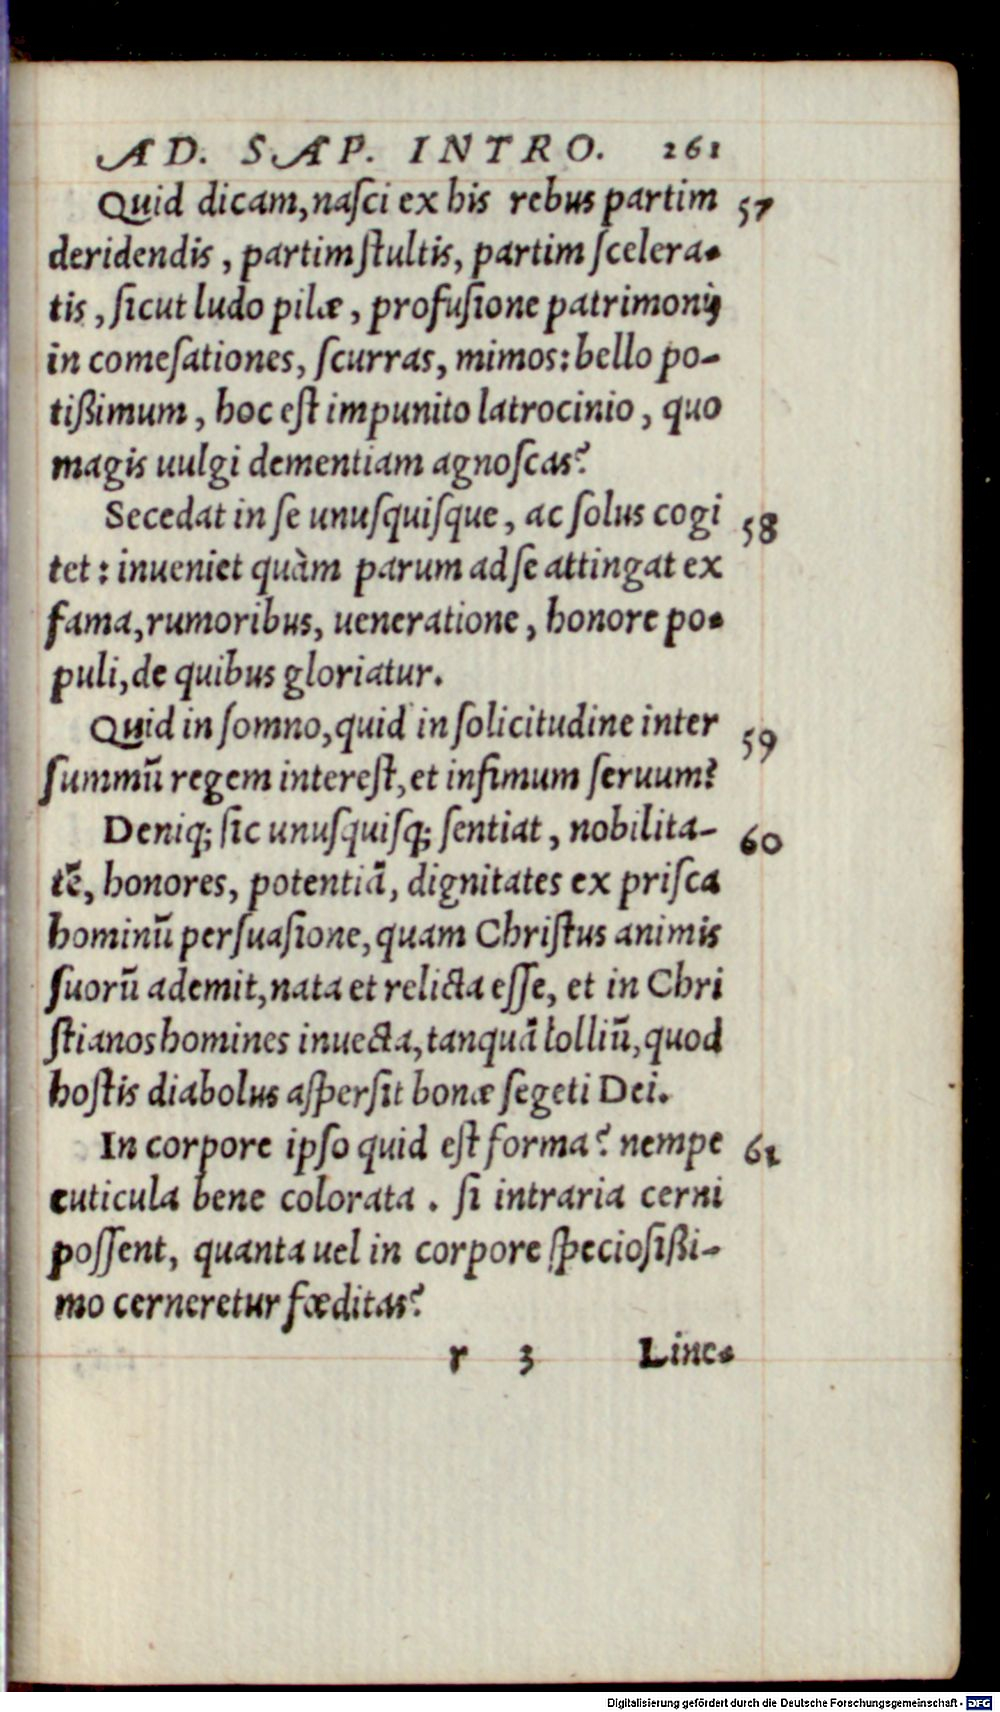 AD. SAP. INTRO. 261
Quid dicam, naſci ex his rebus partim 57
deridendis, partim ſtultis, partim ſcelera-
tis, ſicut ludo pilæ, profuſione patrimonij
in comeſationes, ſcurras, mimos: bello po-
tißimum, hoc eſt impunito latrocinio, quo
magis uulgi dementiam agnoſcas?
Secedat in ſe unuſquiſque, ac ſolus cogi 58
tet: inueniet quàm parum ad ſe attingat ex
fama, rumoribus, ueneratione, honore po-
puli, de quibus gloriatur.
Quid in ſomno, quid in ſolicitudine inter 59
ſummũ regem intereſt, et infimum ſeruum?
Deniq; ſic unuſquiſq; ſentiat, nobilita- 60
tẽ, honores, potentiã, dignitates ex priſca
hominũ perſuaſione, quam Chriſtus animis
ſuorũ ademit, nata et relicta eſſe, et in Chri
ſtianos homines inuecta, tanquã lolliũ, quod
hoſtis diabolus aſperſit bonæ ſegeti Dei.
In corpore ipſo quid eſt forma? nempe 61
cuticula bene colorata. ſi intraria cerni
poſſent, quanta uel in corpore ſpecioſißi-
mo cerneretur fœditas?
r 3 Linea-
Digitalisierung gefördert durch die Deutsche Forschungsgemeinschaft - DFG